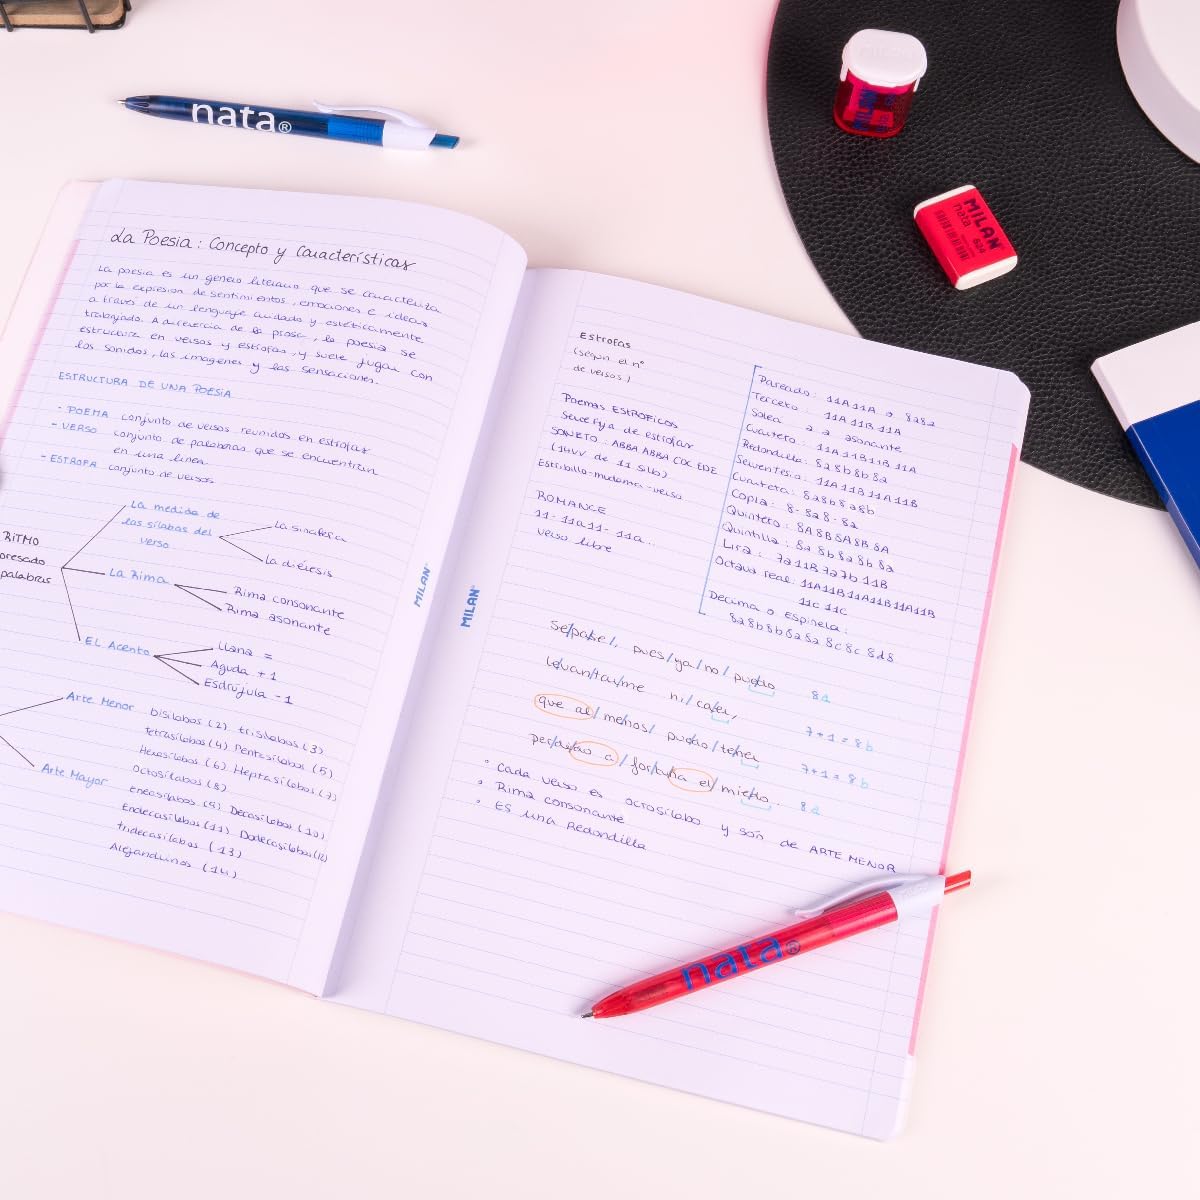 nata®
MILAN
MILAN
nata
624
La Poesía: Concepto y Características
La poesía es un género literario que se caracteriza
por la expresión de sentimientos, emociones e ideas
a través de un lenguaje cuidado y estéticamente
trabajado. A diferencia de la prosa, la poesía se
estructura en versos y estrofas, y suele jugar con
los sonidos, las imágenes y las sensaciones.
ESTRUCTURA DE UNA POESIA
- POEMA conjunto de versos reunidos en estrofas
- VERSO conjunto de palabras que se encuentran
en una línea
- ESTROFA conjunto de versos
RITMO
palabras
La medida de
las sílabas del
verso
La sinalefa
La diéresis
La Rima
Rima consonante
Rima asonante
EL Acento
Llana =
Aguda + 1
Esdrújula - 1
Arte Menor
bisílabos (2) trisílabos (3)
tetrasílabos (4) Pentasílabos (5)
Hexasílabos (6) Heptasílabos (7)
octosílabos (8)
Arte Mayor
eneasílabos (9) Decasílabos (10)
Endecasílabos (11) Dodecasílabos (12)
tridecasílabos (13)
Alejandrinos (14)
MILAN®
MILAN®
Estrofas
(según el nº
de versos)
Poemas ESTROFICOS
de estrofas
SONETO: ABBA ABBA CDC EDE
(14VV de 11 silb)
Estribillo-mudanza-verso
ROMANCE
11- 11a 11- 11a...
verso libre
Pareado: 11A 11A o 8a8a
Terceto: 11A 11B 11A
Solea a a asonante
Cuarteto: 11A 11B 11B 11A
Redondilla: 8a 8b 8b 8a
Serventesio: 11A 11B 11A 11B
Cuarteta: 8a8b8a8b
Copla: 8- 8a 8- 8a
Quinteto: 8A 8B 8A 8B 8A
Quintilla: 8a 8b 8a 8b 8a
Lira: 7a 11B 7a 7b 11B
Octava real: 11A 11B 11A 11B 11A 11B
11C 11C
Décima o Espinela:
8a 8b 8b 8a 8a 8c 8c 8d 8
Se/pa/se/, pues/ya/no/puedo 8a
levan/tar/me ni/caer, 7+1=8b
que al/menos/puedo/tener 7+1=8b
per/di/do a/for/tuna el/miedo. 8a
° Cada verso es octosílabo y son de ARTE MENOR
° Rima consonante
° ES una Redondilla
nata®